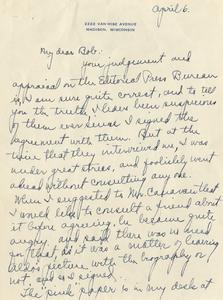 April 6.
2222 VAN HISE AVENUE
MADISON, WISCONSIN
My dear Bob:
Your judgement and
appraisal on the Editorial Press Bureau
is, I am sure quite correct, and to tell
you the truth, I've been suspicious
of them ever since I signed the
agreement with them. But at the
time that they interviewed me, I was
under great stress, and foolishly went
ahead without consulting any one.
When I suggested to Mr. that
I would like to consult a friend about
it before agreeing, he became quite
angry, and said there was no need
for that, as it was a matter of leaving
Aldo's picture with the biography or
not, and so I signed.
The "pink" paper is in my desk at